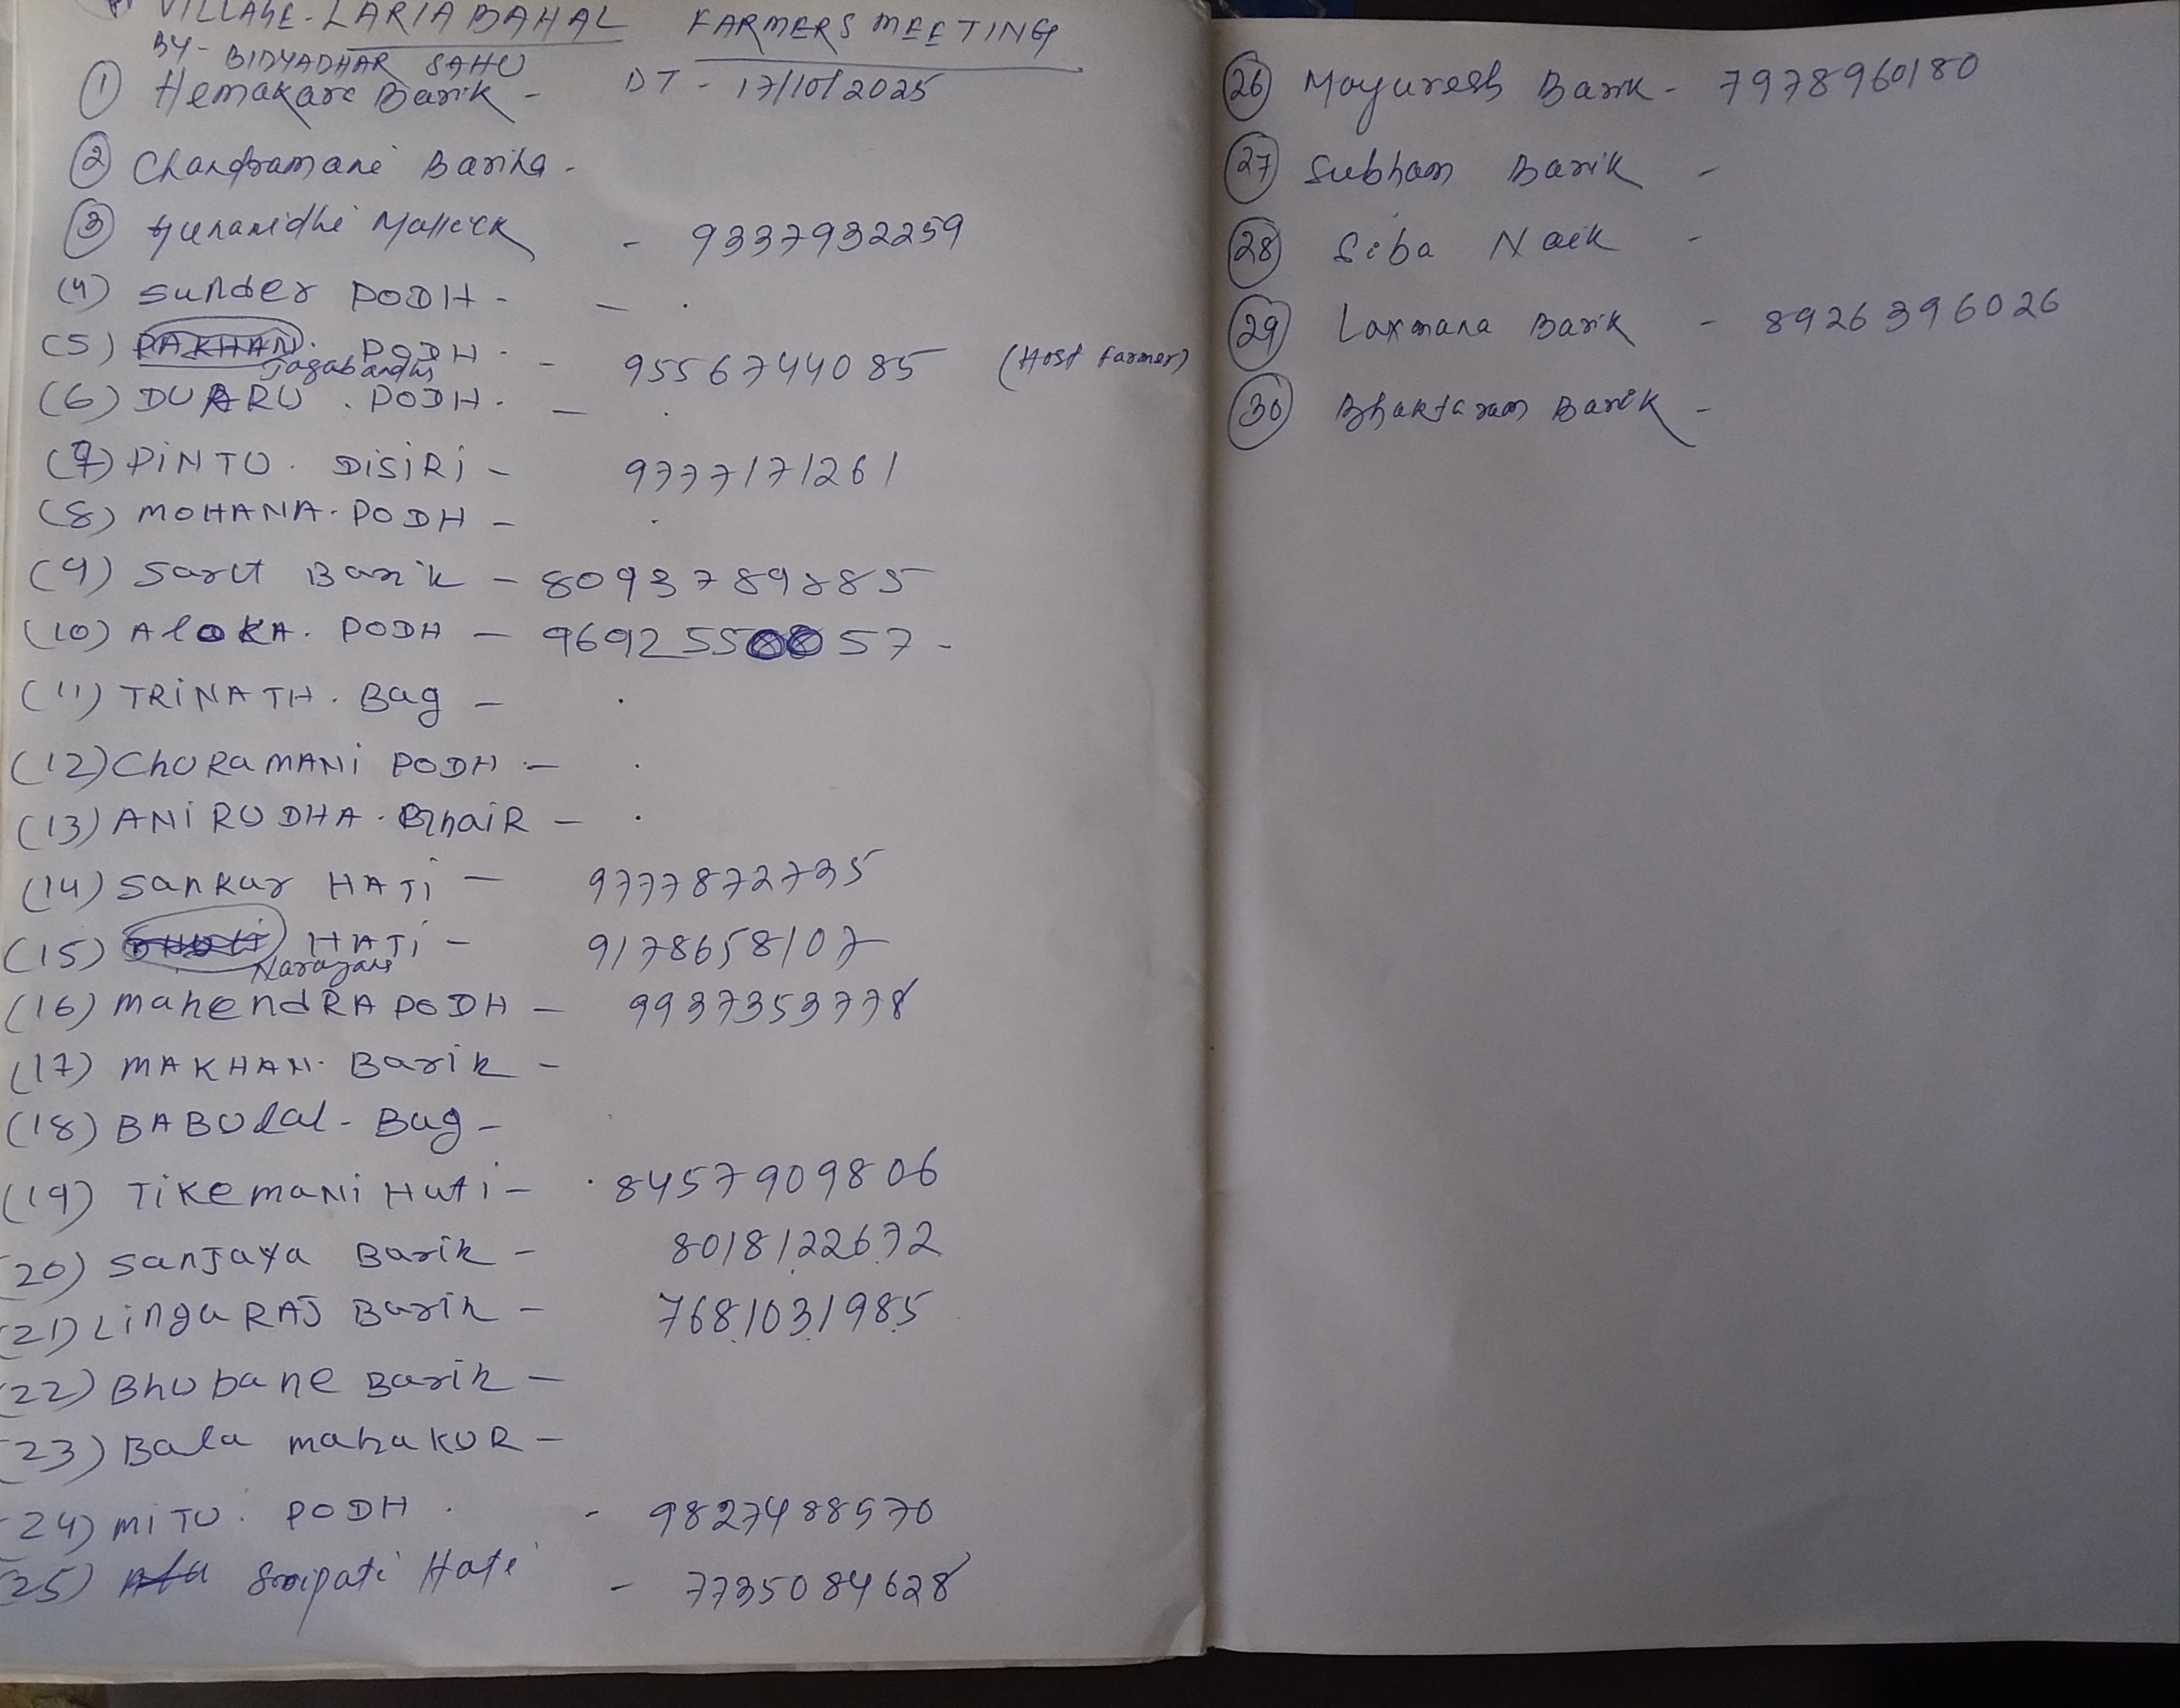 VILLAGE - LARIABAHAL FARMERS MEETING
BY - BIDYADHAR SAHU
DT - 17/10/2025
① Hemakara Barik -
② Chandramani Bariha -
③ Gunanidhi Mallick - 9337932259
(4) Sunder PODH - -
(5) PAKHAN. PODH - - 9556744085 (Host farmer)
Jagabandhu
(6) DUARU . PODH . -
(7) PiNTU . DiSiRi - 9777171261
(8) MOHANA . PODH -
(9) Sarut Barik - 8093789885
(10) AloKA . PODH - 9692550057 -
(11) TRiNATH . Bag -
(12) ChURaMANi PODH -
(13) ANiRUDHA . BhaiR -
(14) Sankar HATi - 9777872735
(15) HATi - 9178658107
Narayan
(16) MahendRA PODH - 9937353778
(17) MAKHAN . Barik -
(18) BABUlal - Bag -
(19) TiKemaNi Hati - 8457909806
(20) SanJaya Barik - 8018122672
(21) LingaRAJ Barik - 7681031985
(22) Bhubane Barik -
(23) Bala mahaKUR -
(24) MiTU . PODH . - 9827488570
(25) Sripati Hati - 7735084628
(26) Mayuresh Barik - 7978960180
(27) Subham Barik -
(28) Siba Naik -
(29) Laxmana Barik - 8926396026
(30) Bhaktaram Barik -